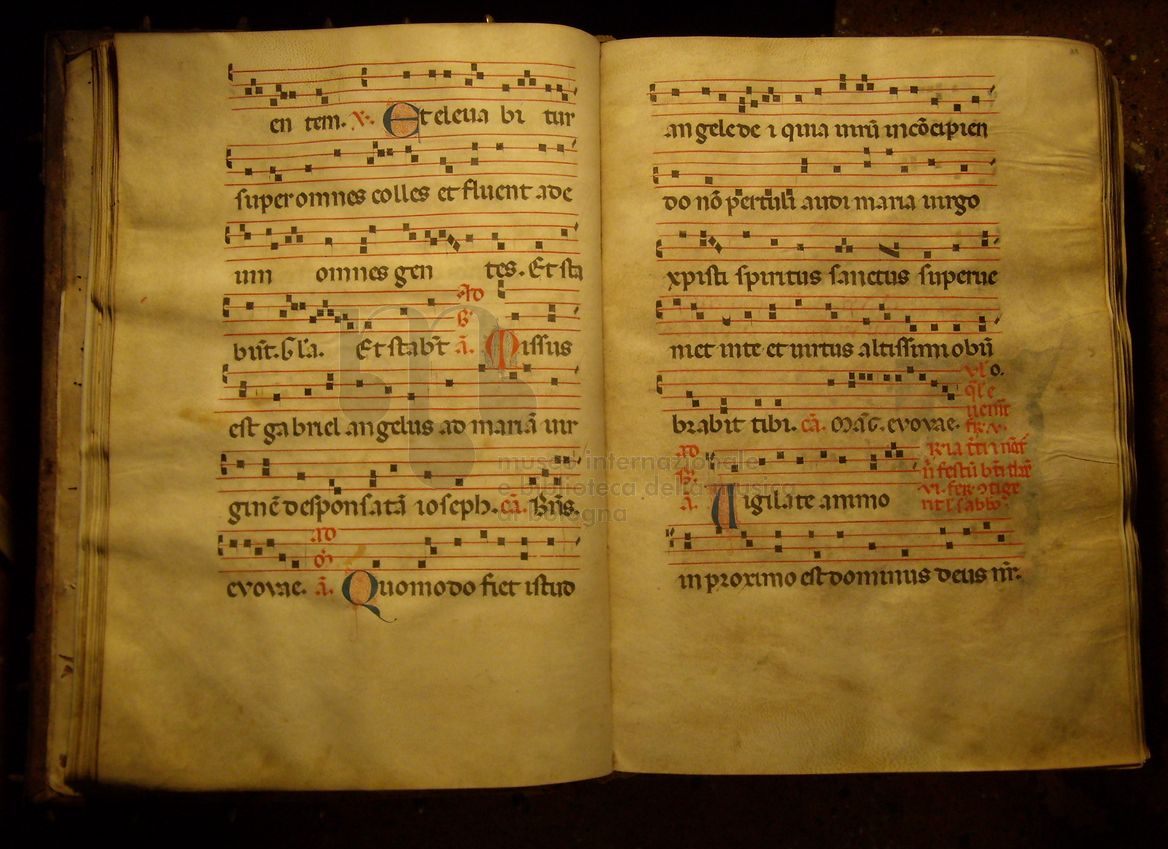 en tem. V. Et eleua bi tur
super omnes colles et fluent ade
um omnes gen tes. Et sta
būt. Gl'a. Et stabūt ad B. ā. Missus
est gabriel angelus ad mariā uir
ginē desponsatā ioseph. cā. Bn̄s.
evovae. ad ā. Quomodo fiet istud
angele dei quia uirū in cōcipien
do nō pertuli audi maria uirgo
xpisti spiritus sanctus superue
niet in te et uirtus altissimi obū
brabit tibi. cā. Māg. evovae.
ad B. ā. Vigilate animo
in proximo est dominus deus nr̄.
museo internazionale
e biblioteca della musica
di bologna